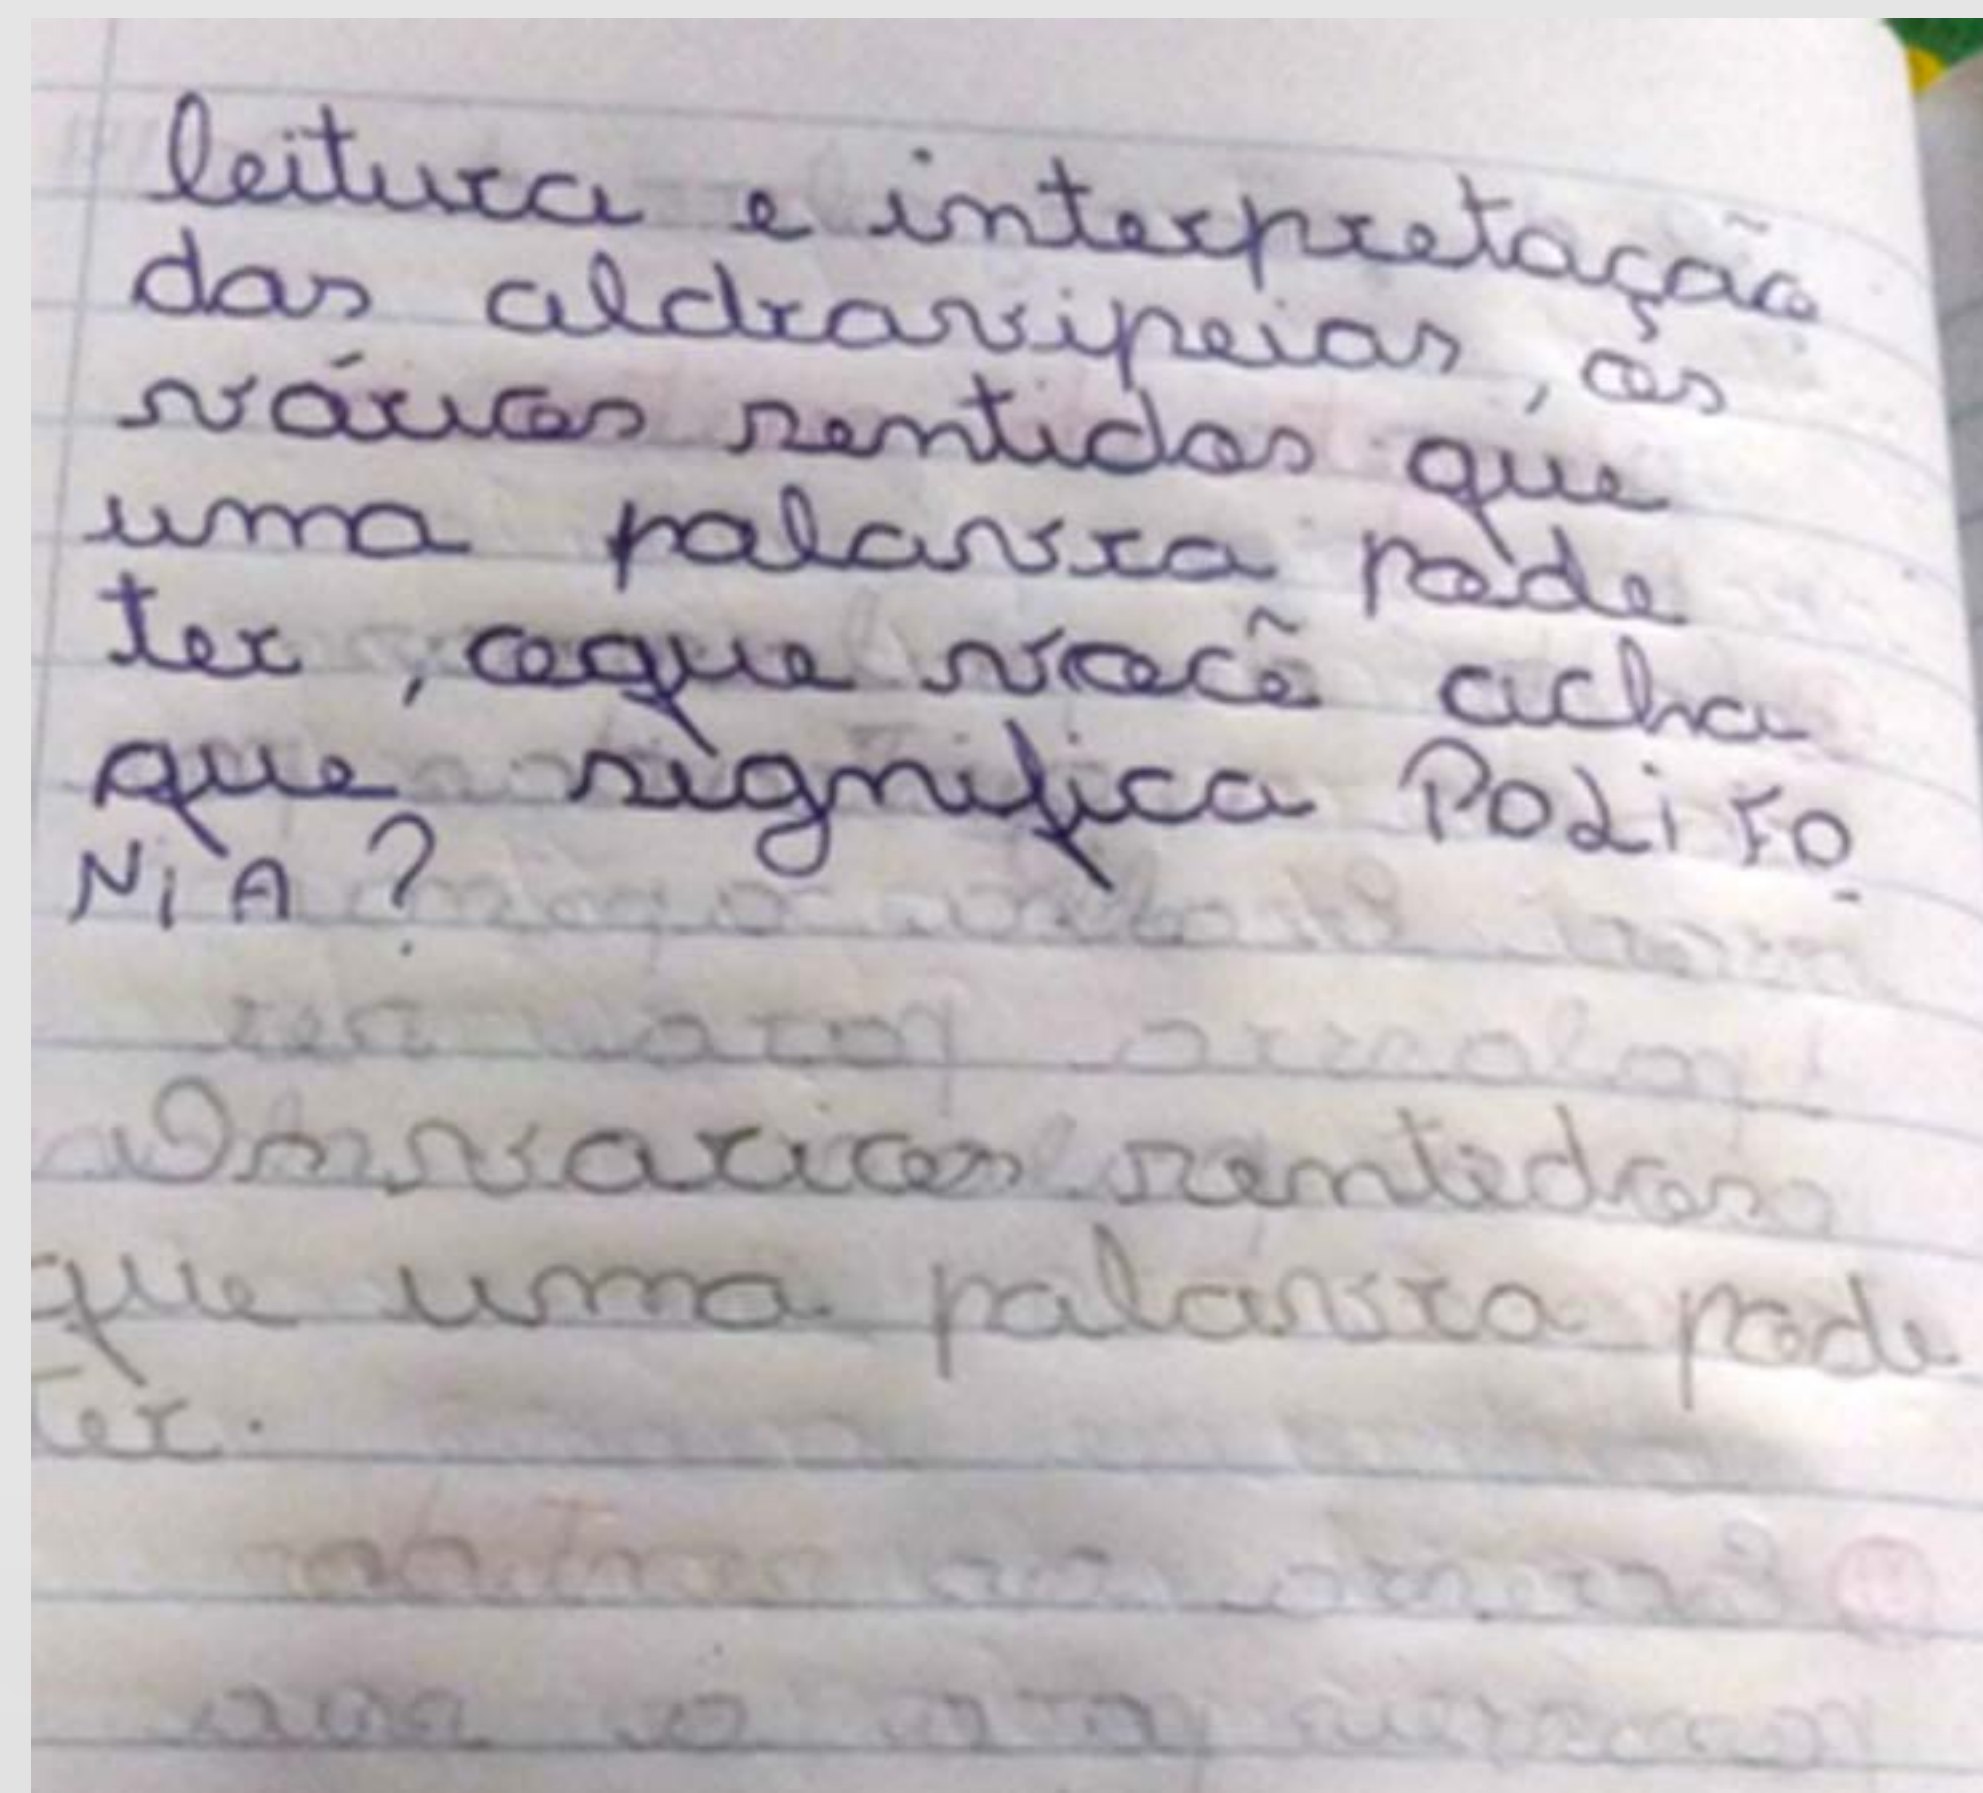 leitura e interpretação
das aldravipeias, os
vários sentidos que
uma palavra pode
ter, oque você acha
que significa POLIFO
NIA?
Os varios sentidos
que uma palavra pode
ter.